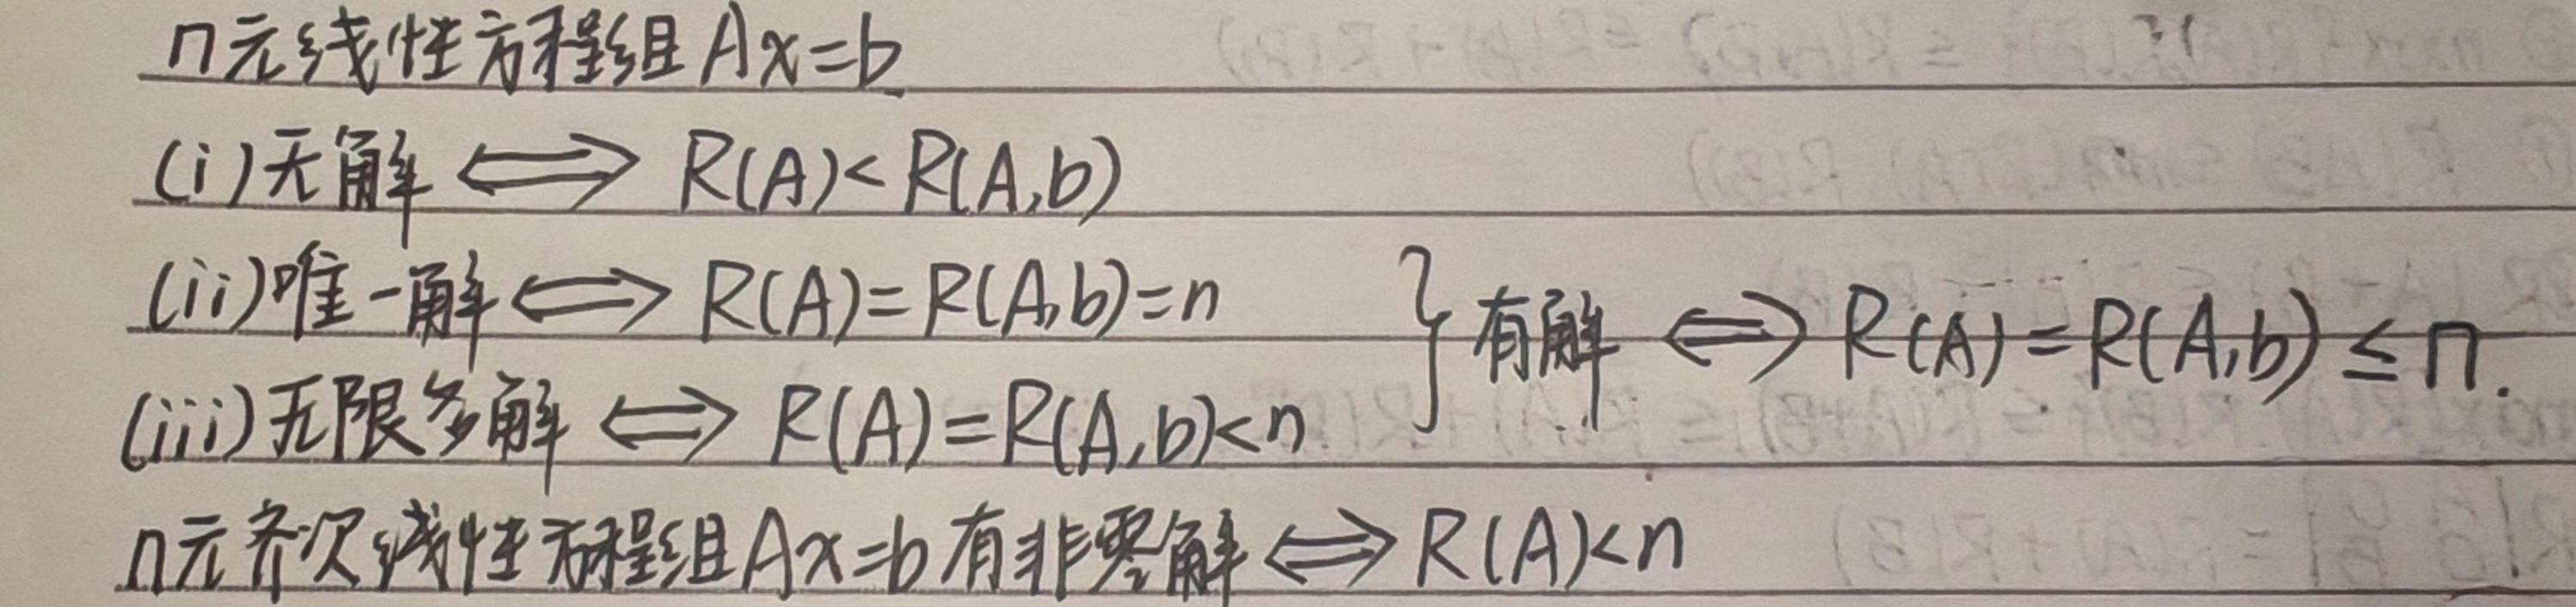 n元线性方程组Ax=b
(i)无解 ⟺ R(A)<R(A,b)
(ii)唯一解 ⟺ R(A)=R(A,b)=n
(iii)无限多解 ⟺ R(A)=R(A,b)<n
} 有解 ⟺ R(A)=R(A,b)≤n.
n元齐次线性方程组Ax=b有非零解 ⟺ R(A)<n